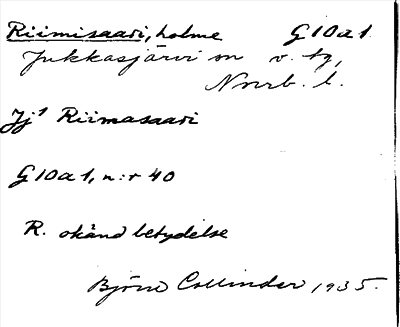 Riimisaari, holme G10a1
Jukkasjärvi sn v. tg,
Norrb. l.
Jj¹ Riimasaari
G10a1, n:r 40
R. okänd betydelse
Björn Collinder 1935.